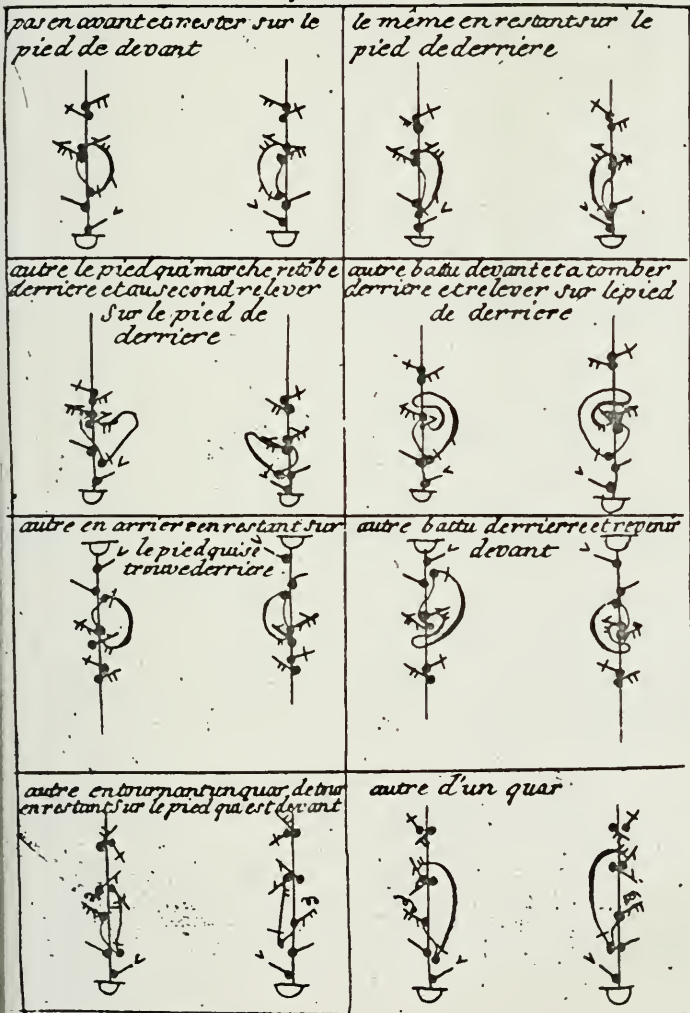 pas en avant et rester sur le
pied de devant
le même en restant sur le
pied de derriére
autre le pied qui marche retõbe
derriere et au second relever
sur le pied de
derriere
autre battu devant et a tomber
derriere et relever sur le pied
de derriere
autre en arriere en restant sur
le pied qui se
trouve derriere
autre battu derrierre et revenir
devant
autre en tournant un quar de tour
en restant sur le pied qui est devant
autre d'un quar